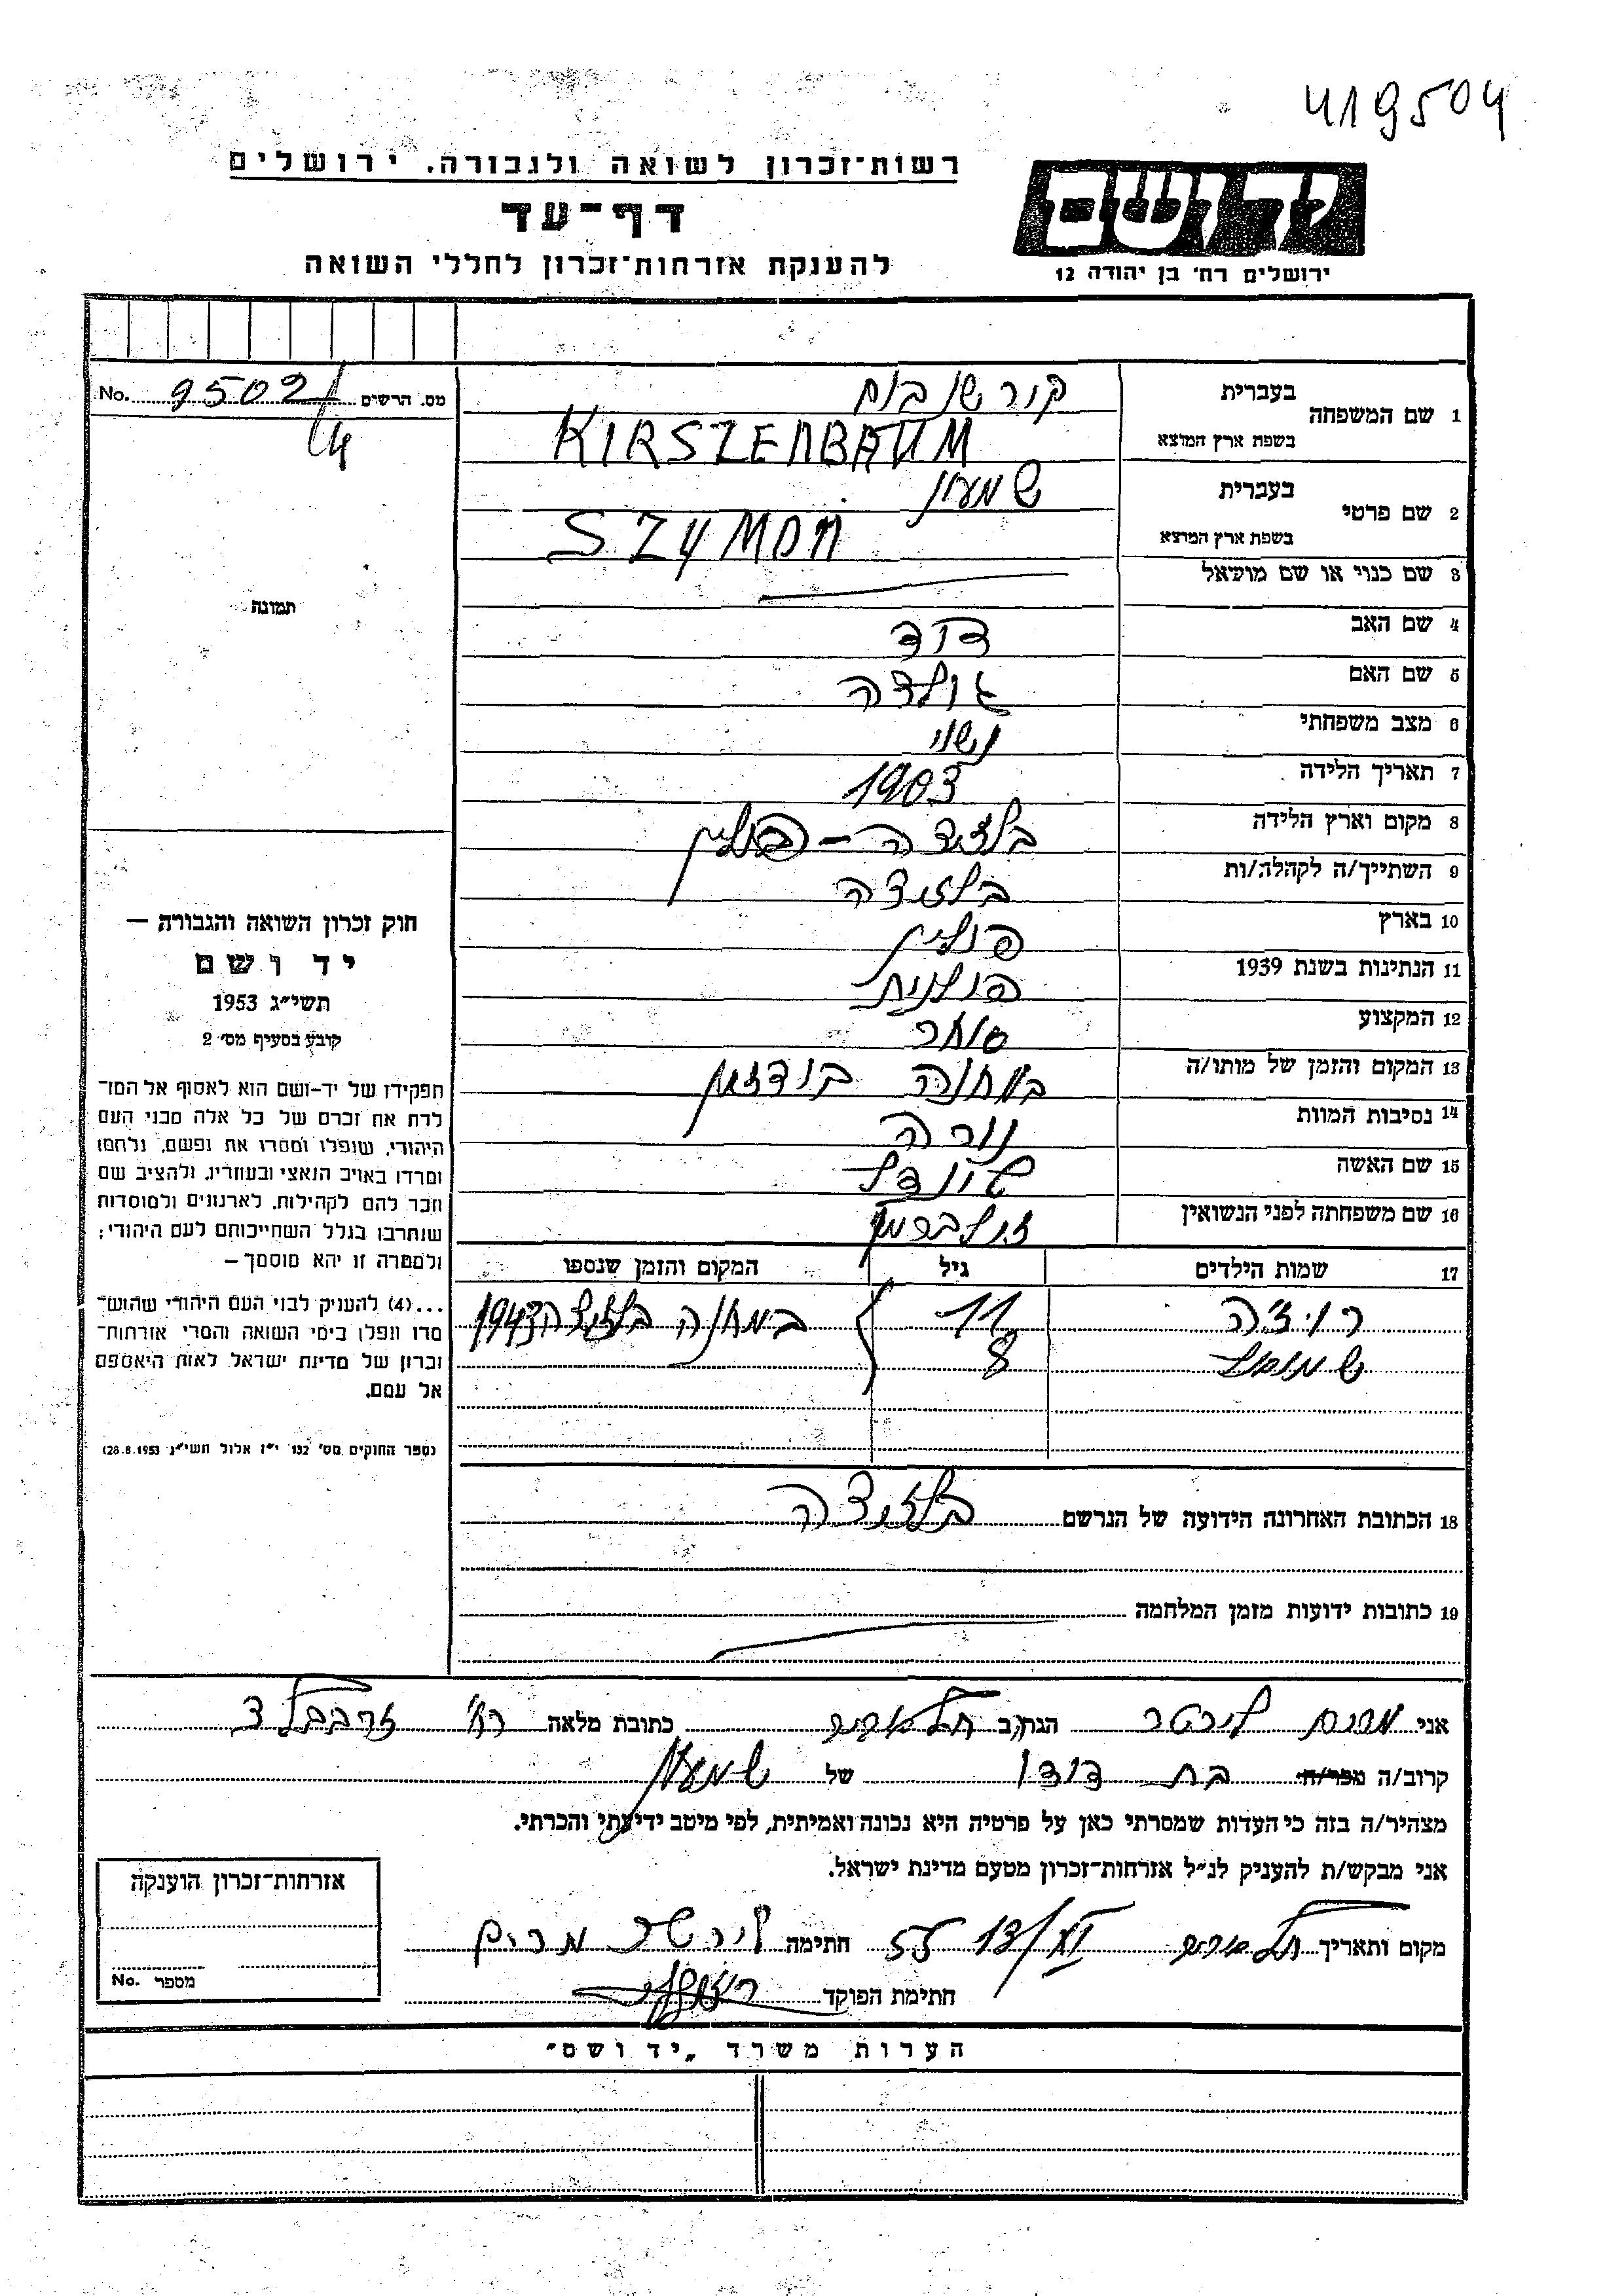 419504
רשות־זכרון לשואה ולגבורה. ירושלים
דף־עד
להענקת אזרחות־זכרון לחללי השואה
יד ושם
ירושלים רח׳ בן יהודה 12
מס. הרשים 95024 No.
1 שם המשפחה
בעברית
קירשנבום
בשפת ארץ המוצא
KIRSZENBAUM
2 שם פרטי
בעברית
שמעון
בשפת ארץ המוצא
SZYMON
3 שם כנוי או שם מושאל
4 שם האב דוד
5 שם האם גולדה
6 מצב משפחתי נשוי
7 תאריך הלידה 1903
8 מקום וארץ הלידה בלזיצה – פולין
9 השתייך/ה לקהלה/ות בלזיצה
10 בארץ פולין
11 הנתינות בשנת 1939 פולנית
12 המקצוע סוחר
13 המקום והזמן של מותו/ה במחנה בודזין
14 נסיבות המוות נורה
15 שם האשה שינדל
16 שם משפחתה לפני הנשואין זילברמן
17 שמות הילדים גיל המקום והזמן שנספו
רויז׳ה 11 במחנה 1943
שמואל 8
18 הכתובת האחרונה הידועה של הנרשם בלזיצה
19 כתובות ידועות מזמן המלחמה
תמונה
חוק זכרון השואה והגבורה —
יד ושם
תשי״ג 1953
קובע בסעיף מס׳ 2
תפקידו של יד-ושם הוא לאסוף אל המו־
לדת את זכרם של כל אלה מבני העם
היהודי, שנפלו ומסרו את נפשם, נלחמו
ומרדו באויב הנאצי ובעוזריו, ולהציב שם
וזכר להם לקהילות, לארגונים ולמוסדות
שנחרבו בגלל השתייכותם לעם היהודי;
ולמטרה זו יהא מוסמך —
...(4) להעניק לבני העם היהודי שהוש־
מדו ונפלו בימי השואה והמרי אזרחות־
זכרון של מדינת ישראל לאות היאספם
אל עמם.
(ספר החוקים מס׳ 132 י״ז אלול תשי״ג 28.8.1953)
אני מרים לירטר הגר/ב תל אביב כתובת מלאה רח׳ זרבבל 3
קרוב/ה מכר/ה בת דודו של שמעון
מצהיר/ה בזה כי העדות שמסרתי כאן על פרטיה היא נכונה ואמיתית, לפי מיטב ידיעתי והכרתי.
אני מבקש/ת להעניק לנ״ל אזרחות־זכרון מטעם מדינת ישראל.
מקום ותאריך תל אביב 13/XI 55 חתימה מרים
חתימת הפוקד
אזרחות־זכרון הוענקה
מספר No.
הערות משרד „יד ושם״